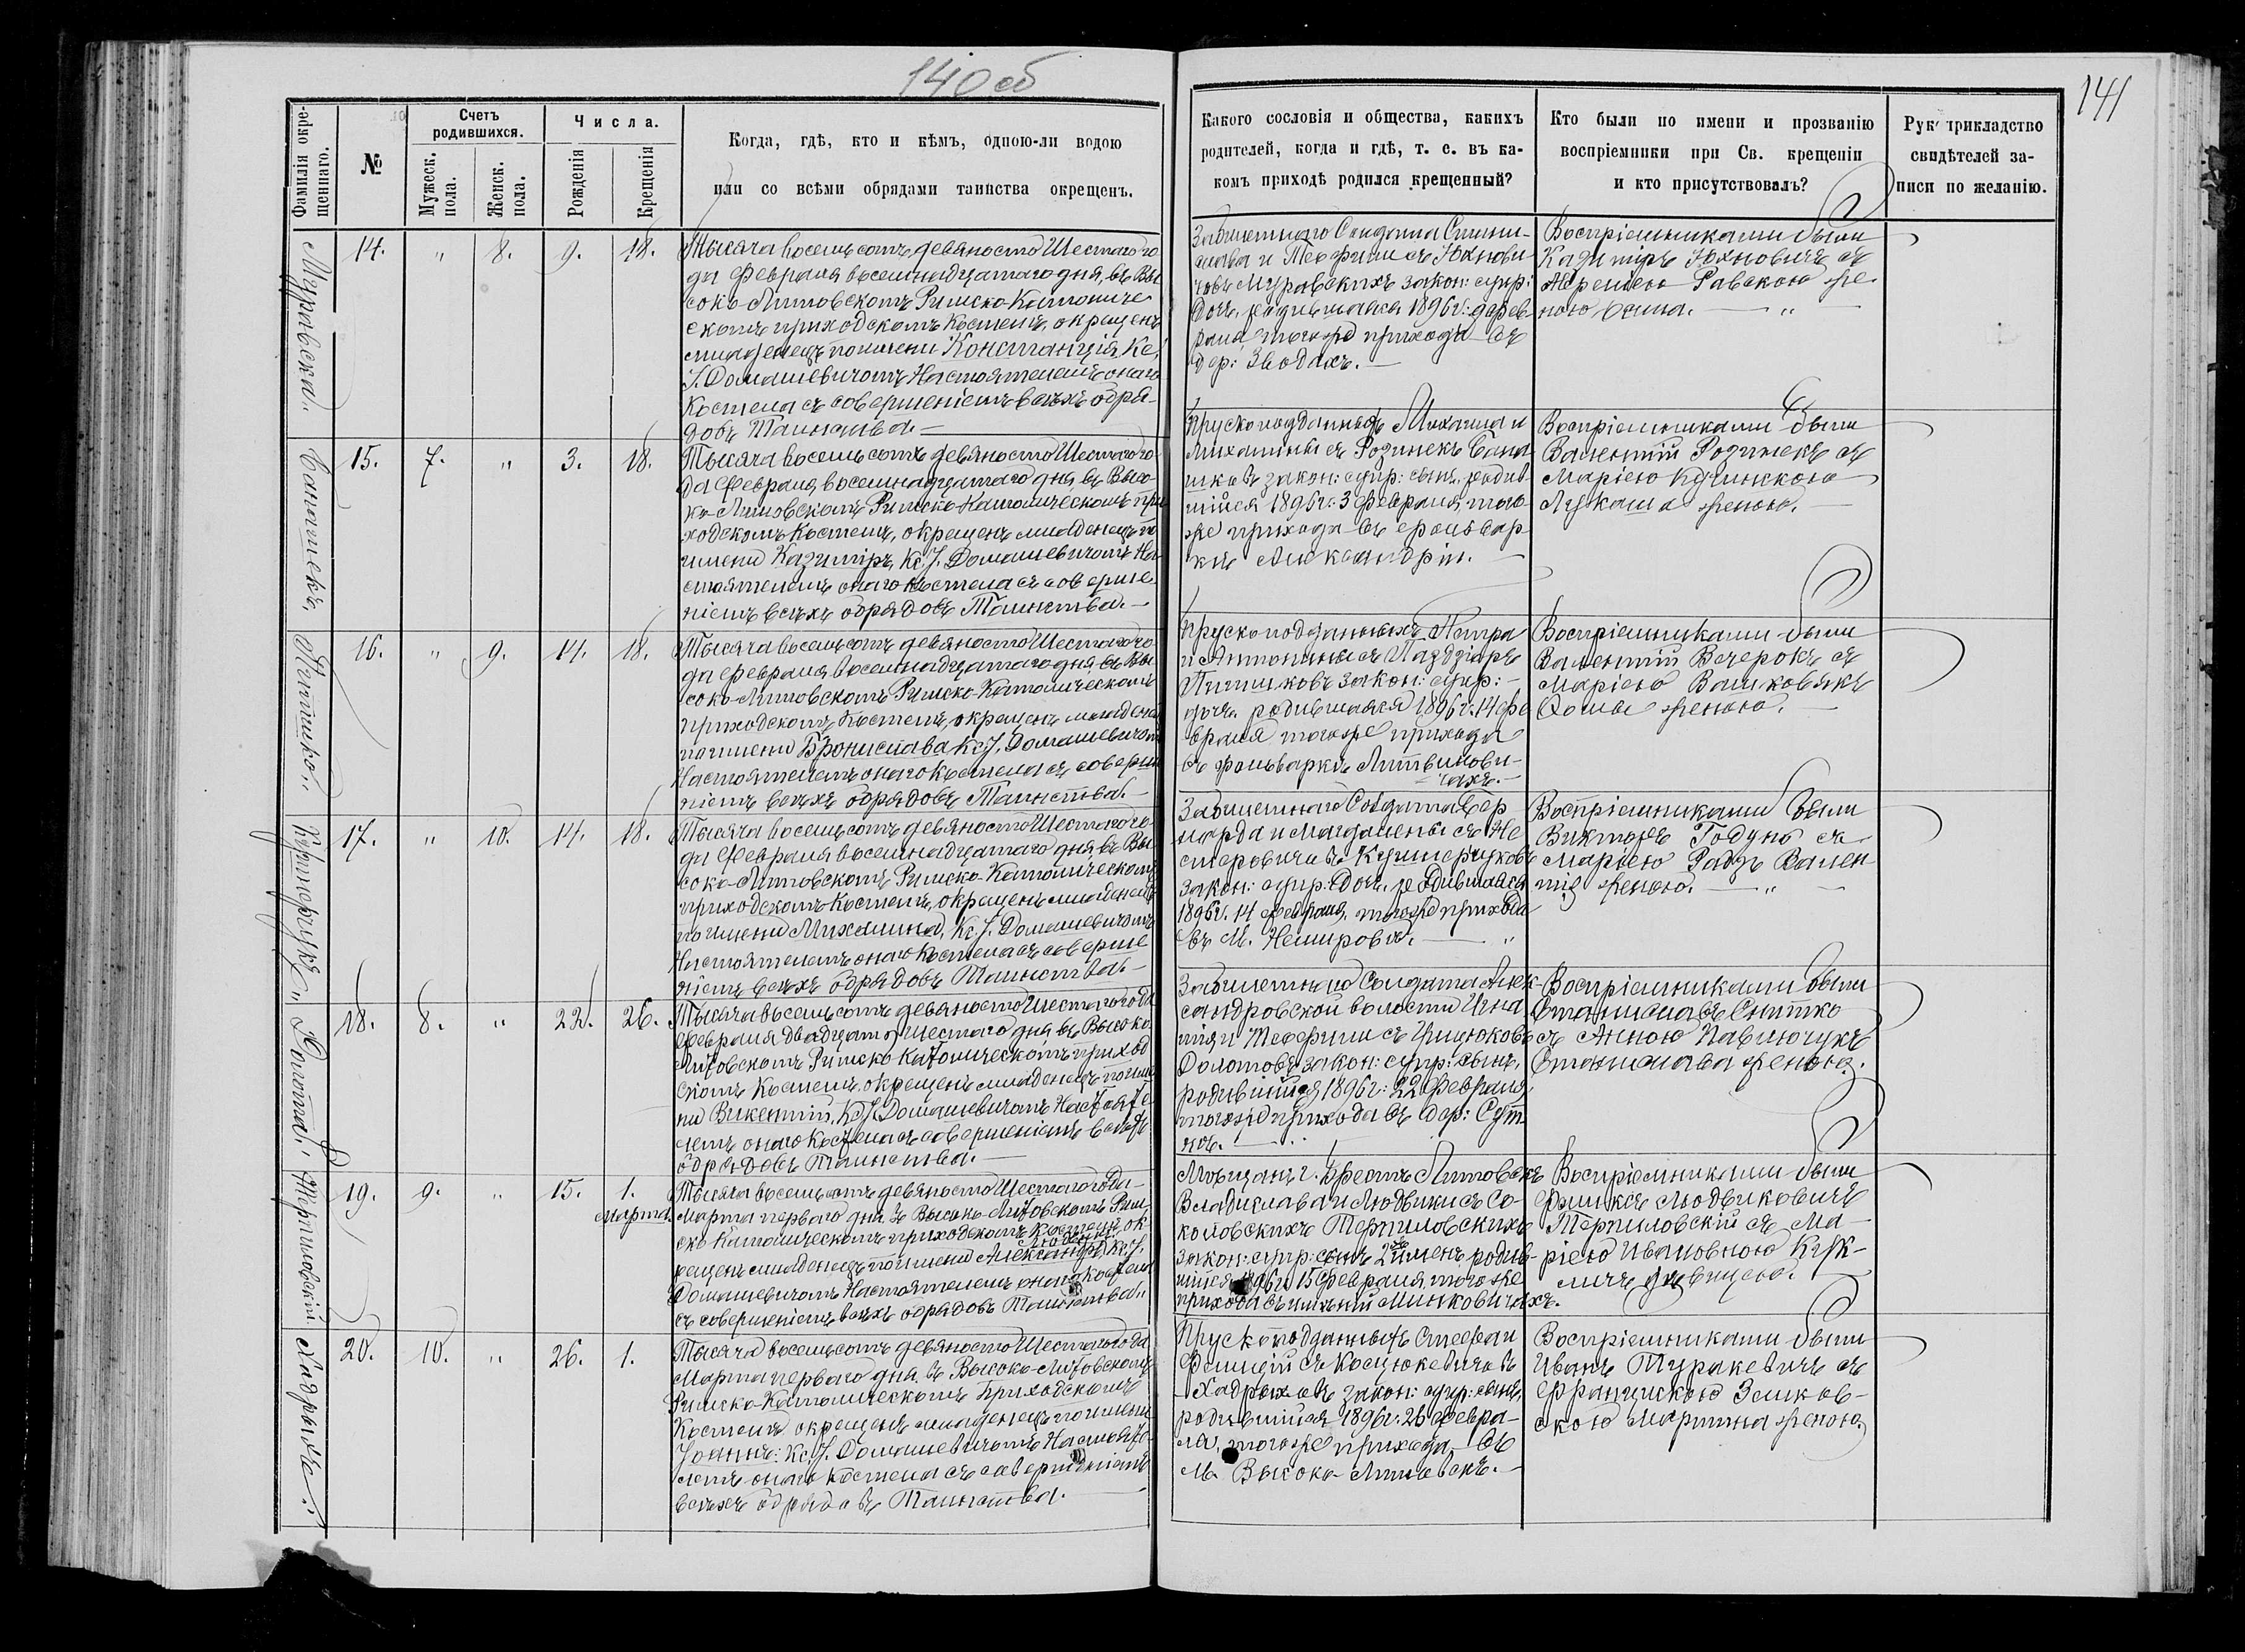 140 об
141
Фамилія окре-
щеннаго.
№
Счетъ
родившихся.
Мужеск.
пола.
Женск.
пола.
Числа.
Рожденія
Крещенія
Когда, гдѣ, кто и кѣмъ, одною-ли водою
или со всѣми обрядами таинства окрещенъ.
Какого сословія и общества, какихъ
родителей, когда и гдѣ, т. е. въ ка-
комъ приходѣ родился крещенный?
Кто были по имени и прозванію
воспріемники при Св. крещеніи
и кто присутствовалъ?
Рукоприкладство
свидѣтелей за-
писи по желанію.
Муравская.
14. " 8. 9. 18.
Тысяча восемьсотъ девяносто Шестаго го-
да Февраля восемнадцатаго дня, въ Вы
соко-Литовскомъ Римско-Католиче
скомъ приходскомъ Костелѣ, окрещенъ
младенецъ по имени Констанція, Кс.
І. Домашевичомъ Настоятелемъ онаго
Костела съ совершеніемъ всѣхъ обря-
довъ Таинства.—
Забилетнаго Солдата Стани-
слава и Теофили съ Юхнови-
човъ Муравскихъ закон: супр:
дочь, родившаяся 1896 г: 9 фев-
раля того же прихода въ
дер: Зводахъ.—
Воспріемниками были
Казиміръ Юхновичъ съ
Равскою же-
ною — "
Банашекъ
15. 7. " 3. 18.
Тысяча восемьсотъ девяносто Шестаго го-
да Февраля восемнадцатаго дня, въ Высо-
ко-Литовскомъ Римско-Католическомъ при
ходскомъ Костелѣ, окрещенъ младенецъ по
имени Казиміръ, Кс. І. Домашевичомъ На-
стоятелемъ онаго Костела съ соверше-
ніемъ всѣхъ обрядовъ Таинства.—
Прускоподданныхъ Михаила и
Михалины съ Розинекъ Бана
шковъ закон: супр: сынъ, родив-
шійся 1896 г: 3 Февраля, того
же прихода въ фольвар-
кѣ Александріи.—
Воспріемниками были
Валентій Розинекъ съ
Маріею Кучинскою
Лукаша женою.—
Петшко
16. " 9. 14. 18.
Тысяча восемьсотъ девяносто Шестаго го-
да Февраля восемнадцатаго дня въ Вы
соко-Литовскомъ Римско-Католическомъ
приходскомъ Костелѣ, окрещенъ младенец
по имени Бронислава, Кс. І. Домашевичомъ
Настоятелемъ онаго Костела съ соверше
ніемъ всѣхъ обрядовъ Таинства.—
Прускоподданныхъ Петра
и Антонины съ Паздзіоръ
закон: супр:—
дочь, родившаяся 1896 г. 14 фе
враля того же прихода
въ фольваркѣ Литвинови-
чахъ.—
Воспріемниками были
Валентій Вечерокъ съ
Маріею Вашковякъ
Ѳомы женою.—
Кушнерукъ
17. " 10. 14. 18.
Тысяча восемьсотъ девяносто Шестаго го-
да Февраля восемнадцатаго дня въ Вы
соко-Литовскомъ Римско-Католическомъ
приходскомъ Костелѣ, окрещенъ младенецъ
по имени Михалина, Кс. І. Домашевичомъ
Настоятелемъ онаго Костела съ соверше
ніемъ всѣхъ обрядовъ Таинства.—
Забилетнаго Солдата Бер
нарда и Магдалены съ Не
стеровичовъ Кушнеруковъ
закон: супр: дочь, родившаяся
1896 г. 14 февраля, того же прихода
въ М. Немировѣ.— "
Воспріемниками были
Викторъ Годунъ съ
Маріею Радзь Вален
тія женою.— "
Долота.
18. 8. " 22. 26.
Тысяча восемьсотъ девяносто Шестаго года
Февраля двадцать Шестаго дня въ Высоко
Литовскомъ Римско Католическомъ приход
скомъ Костелѣ, окрещенъ младенецъ по име
ни Викентій, Кс. І. Домашевичомъ Настояте
лемъ онаго Костела съ совершеніемъ всѣхъ
обрядовъ Таинства.—
Забилетнаго Солдата Алек-
сандровской волости Игна
тія и Теофили съ Грицюковъ
Долотовъ закон: супр: сынъ,
родившійся 1896 г: 22 Февраля,
того же прихода въ дер: Сут
кѣ.—
Воспріемниками были
Станиславъ Снитко
съ Анною Павлючукъ
Станислава женою.
Терпиловскій
19. 9. " 15. 1.
Марта.
Тысяча восемьсотъ девяносто Шестаго года
Марта перваго дня въ Высоко-Литовскомъ Рим
ско-Католическомъ приходскомъ Костелѣ ок-
рещенъ младенецъ по имени Александръ Кс. І.
Домашевичомъ Настоятелемъ онаго Костела
съ совершеніемъ всѣхъ обрядовъ Таинства.
Мѣщанъ г. Брестъ Литовска
Владислава и Людвики съ Со-
коловскихъ Терпиловскихъ
закон: супр: сынъ 2 именъ, родив-
шійся 1896 г. 15 Февраля, того же
прихода въ имѣніи Минковичахъ.
Воспріемниками были
Феликсъ Людвиковичъ
Терпиловскій съ Ма-
ріею Ивановною Кук-
личъ дѣвицею.
Хадрыхъ
20. 10. " 26. 1.
Тысяча восемьсотъ девяносто Шестаго года
Марта перваго дня, въ Высоко-Литовскомъ
Римско-Католическомъ Приходскомъ
Костелѣ окрещенъ младенецъ по имени
Іоаннъ: Кс. І. Домашевичомъ Настояте-
лемъ онаго Костела съ совершеніемъ
всѣхъ обрядовъ Таинства.—
Прускоподданныхъ Стефан
Фелиціи съ Косцюкевичовъ
Хадрыховъ закон: супр: сынъ,
родившійся 1896 г. 26 Февра-
ля, того же прихода въ
М. Высоко-Литовскѣ.—
Воспріемниками были
Иванъ Туракевичъ съ
Францискою Зелков-
скою Мартина женою.